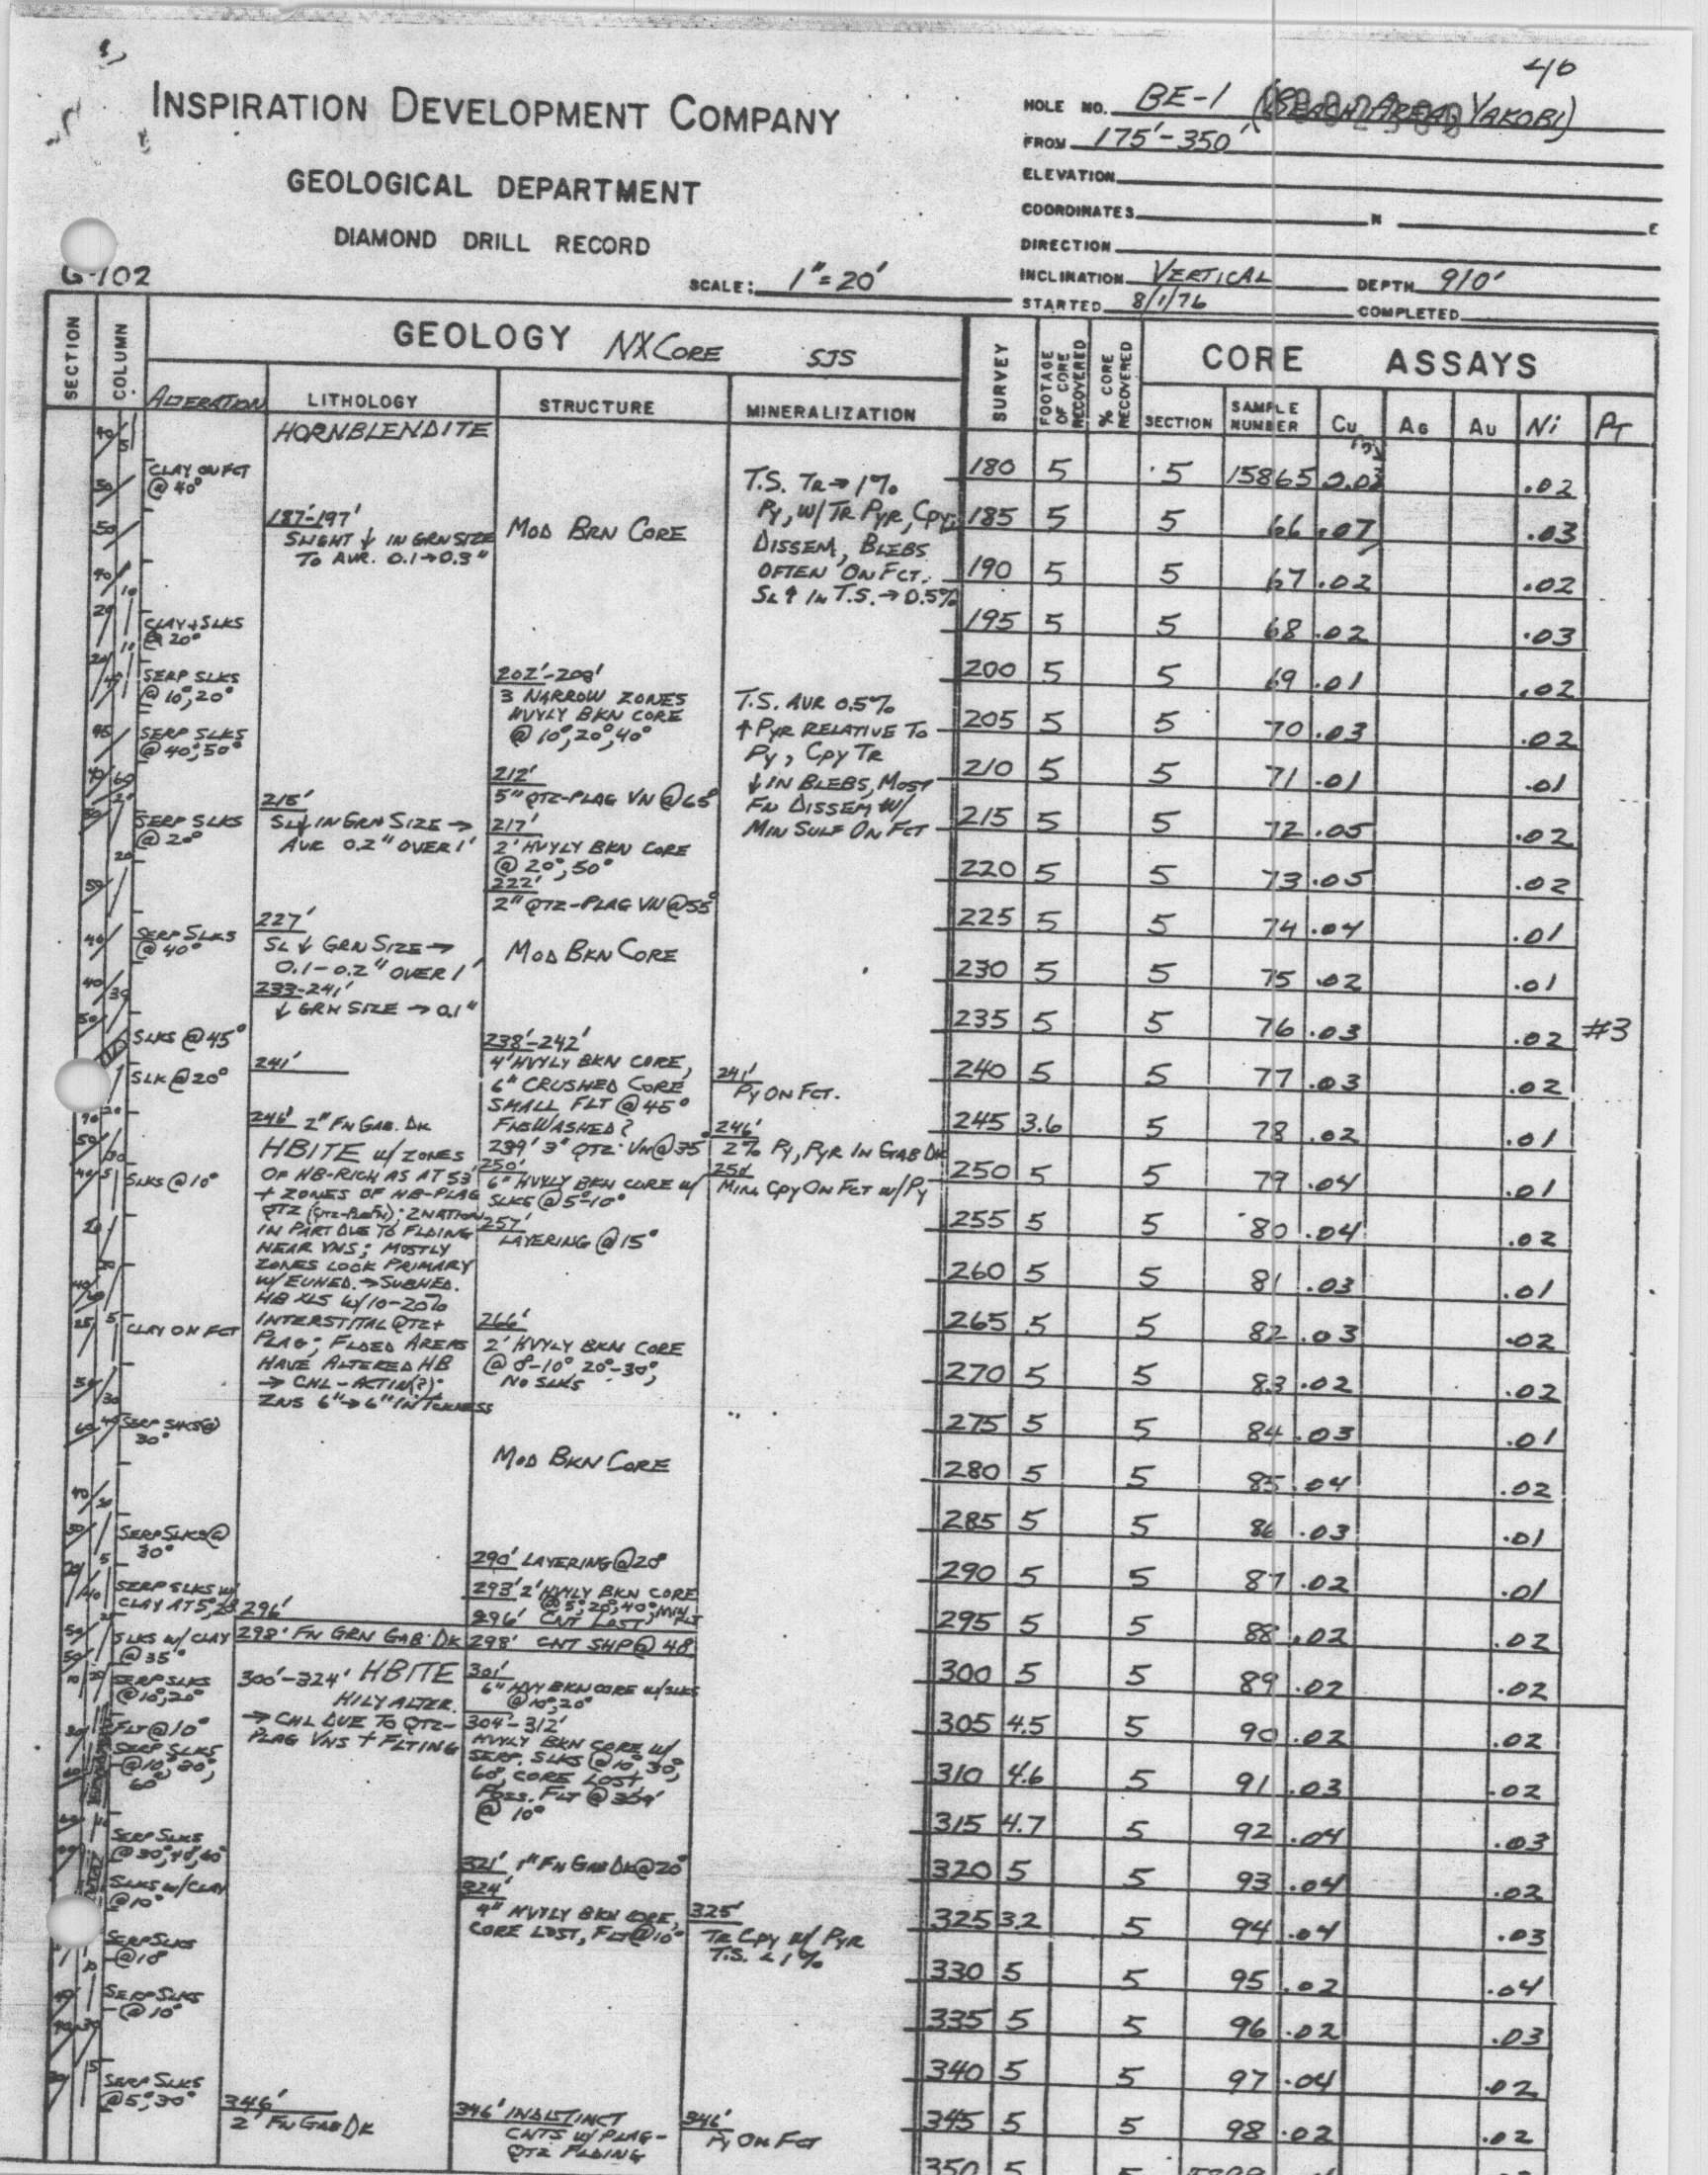 40
INSPIRATION DEVELOPMENT COMPANY
GEOLOGICAL DEPARTMENT
DIAMOND DRILL RECORD
G-102
SCALE: 1"=20'
HOLE NO. BE-1 (BEACH AREA, YAKOBI)
FROM 175'-350'
ELEVATION
COORDINATES N E
DIRECTION
INCLINATION VERTICAL DEPTH 910'
STARTED 8/1/76 COMPLETED
SECTION
COLUMN
GEOLOGY NX CORE SJS
ALTERATION
LITHOLOGY
STRUCTURE
MINERALIZATION
SURVEY
FOOTAGE OF CORE RECOVERED
% CORE RECOVERED
CORE ASSAYS
SECTION
SAMPLE NUMBER
Cu
AG
AU
Ni
PT
CLAY ON FCT
@ 40°
CLAY + SLKS
@ 20°
SERP SLKS
@ 10°, 20°
SERP SLKS
@ 40°, 50°
SERP SLKS
@ 20°
SERP SLKS
@ 40°
SLKS @ 45°
SLK @ 20°
SLKS @ 10°
CLAY ON FCT
SERP SLKS @
30°
SERP SLKS @
30°
SERP SLKS W/
CLAY AT 5°,
SLKS W/ CLAY
@ 35°
SERP SLKS
@ 10°, 20°
FLT @ 10°
SERP SLKS
@ 10°, 30°,
60°
SERP SLKS
@ 30°, 40°, 60°
SLKS W/ CLAY
@ 10°
SERP SLKS
@ 10°
SERP SLKS
@ 10°
SERP SLKS
@ 5°, 30°
HORNBLENDITE
187'-197'
SLIGHT ↓ IN GRN SIZE
TO AVR. 0.1→0.3"
215'
SL ↓ IN GRN SIZE →
AVR 0.2" OVER 1'
227'
SL ↓ GRN SIZE →
0.1-0.2" OVER 1'
233-241'
↓ GRN SIZE → 0.1"
241'
246' 2" FN GAB. DK
HBITE W/ ZONES
OF HB-RICH AS AT 53'
+ ZONES OF HB-PLAG
QTZ; ZNATION
IN PART DUE TO FLDING
NEAR VNS; MOSTLY
ZONES LOOK PRIMARY
W/ EUHED. → SUBHED.
HB XLS W/ 10-20%
INTERSTITAL QTZ +
PLAG; FLDED AREAS
HAVE ALTERED HB
→ CHL-ACTIN(?).
ZNS 6"→6" IN TCKNESS
296'
298' FN GRN GAB. DK
300'-324' HBITE
HILY ALTER.
→ CHL DUE TO QTZ-
PLAG VNS + FLTING
346'
2' FN GAB DK
MOD BKN CORE
202'-208'
3 NARROW ZONES
HVYLY BKN CORE
@ 10°, 20°, 40°
212'
5" QTZ-PLAG VN @ 65°
217'
2' HVYLY BKN CORE
@ 20°, 50°
222'
2" QTZ-PLAG VN @ 55°
MOD BKN CORE
238'-242'
4' HVYLY BKN CORE,
6" CRUSHED CORE
SMALL FLT @ 45°
FNS WASHED?
239' 3" QTZ VN @ 35°
250'
6" HVYLY BKN CORE W/
SLKS @ 5-10°
257'
LAYERING @ 15°
266'
2' HVYLY BKN CORE
@ 8-10° 20°-30°,
NO SLKS
MOD BKN CORE
290' LAYERING @ 20°
293' 2' HVYLY BKN CORE
@ 5°, 20°, 40°, MIN FLT
296' CNT LOST
298' CNT SHP @ 48
301'
6" HVY BKN CORE W/ SLKS
@ 10°, 20°
304'-312'
HVYLY BKN CORE W/
SERP. SLKS @ 10°, 30°,
60°, CORE LOST,
POSS. FLT @ 309'
@ 10°
321' 1" FN GAB DK @ 20°
324'
9" HVYLY BKN CORE,
CORE LOST, FLT @ 10°
346' INDISTINCT
CNTS W/ PLAG-
QTZ FLDING
T.S. TR → 1%
PY, W/ TR PYR, CPY;
DISSEM, BLEBS
OFTEN ON FCT.
SL ↑ IN T.S. → 0.5%
T.S. AVR 0.5%
↑ PYR RELATIVE TO
PY, CPY TR
↓ IN BLEBS, MOST
FN DISSEM W/
MIN SULF ON FCT
241'
PY ON FCT.
246'
2% PY, PYR IN GAB DK
251'
MIN. CPY ON FCT W/ PY
325'
TR CPY W/ PYR
T.S. < 1%
346'
PY ON FCT
180 5 5 15865 0.03 .02
185 5 5 66 .07 .03
190 5 5 67 .02 .02
195 5 5 68 .02 .03
200 5 5 69 .01 .02
205 5 5 70 .03 .02
210 5 5 71 .01 .01
215 5 5 72 .05 .02
220 5 5 73 .05 .02
225 5 5 74 .04 .01
230 5 5 75 .02 .01
235 5 5 76 .03 .02 #3
240 5 5 77 .03 .02
245 3.6 5 78 .02 .01
250 5 5 79 .04 .01
255 5 5 80 .04 .02
260 5 5 81 .03 .01
265 5 5 82 .03 .02
270 5 5 83 .02 .02
275 5 5 84 .03 .01
280 5 5 85 .04 .02
285 5 5 86 .03 .01
290 5 5 87 .02 .01
295 5 5 88 .02 .02
300 5 5 89 .02 .02
305 4.5 5 90 .02 .02
310 4.6 5 91 .03 .02
315 4.7 5 92 .04 .03
320 5 5 93 .04 .02
325 3.2 5 94 .04 .03
330 5 5 95 .02 .04
335 5 5 96 .02 .03
340 5 5 97 .04 .02
345 5 5 98 .02 .02
350 5